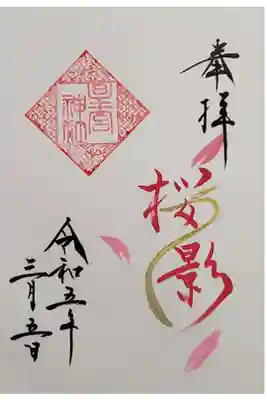 奉拝
桜影
神社
令和五年
三月五日